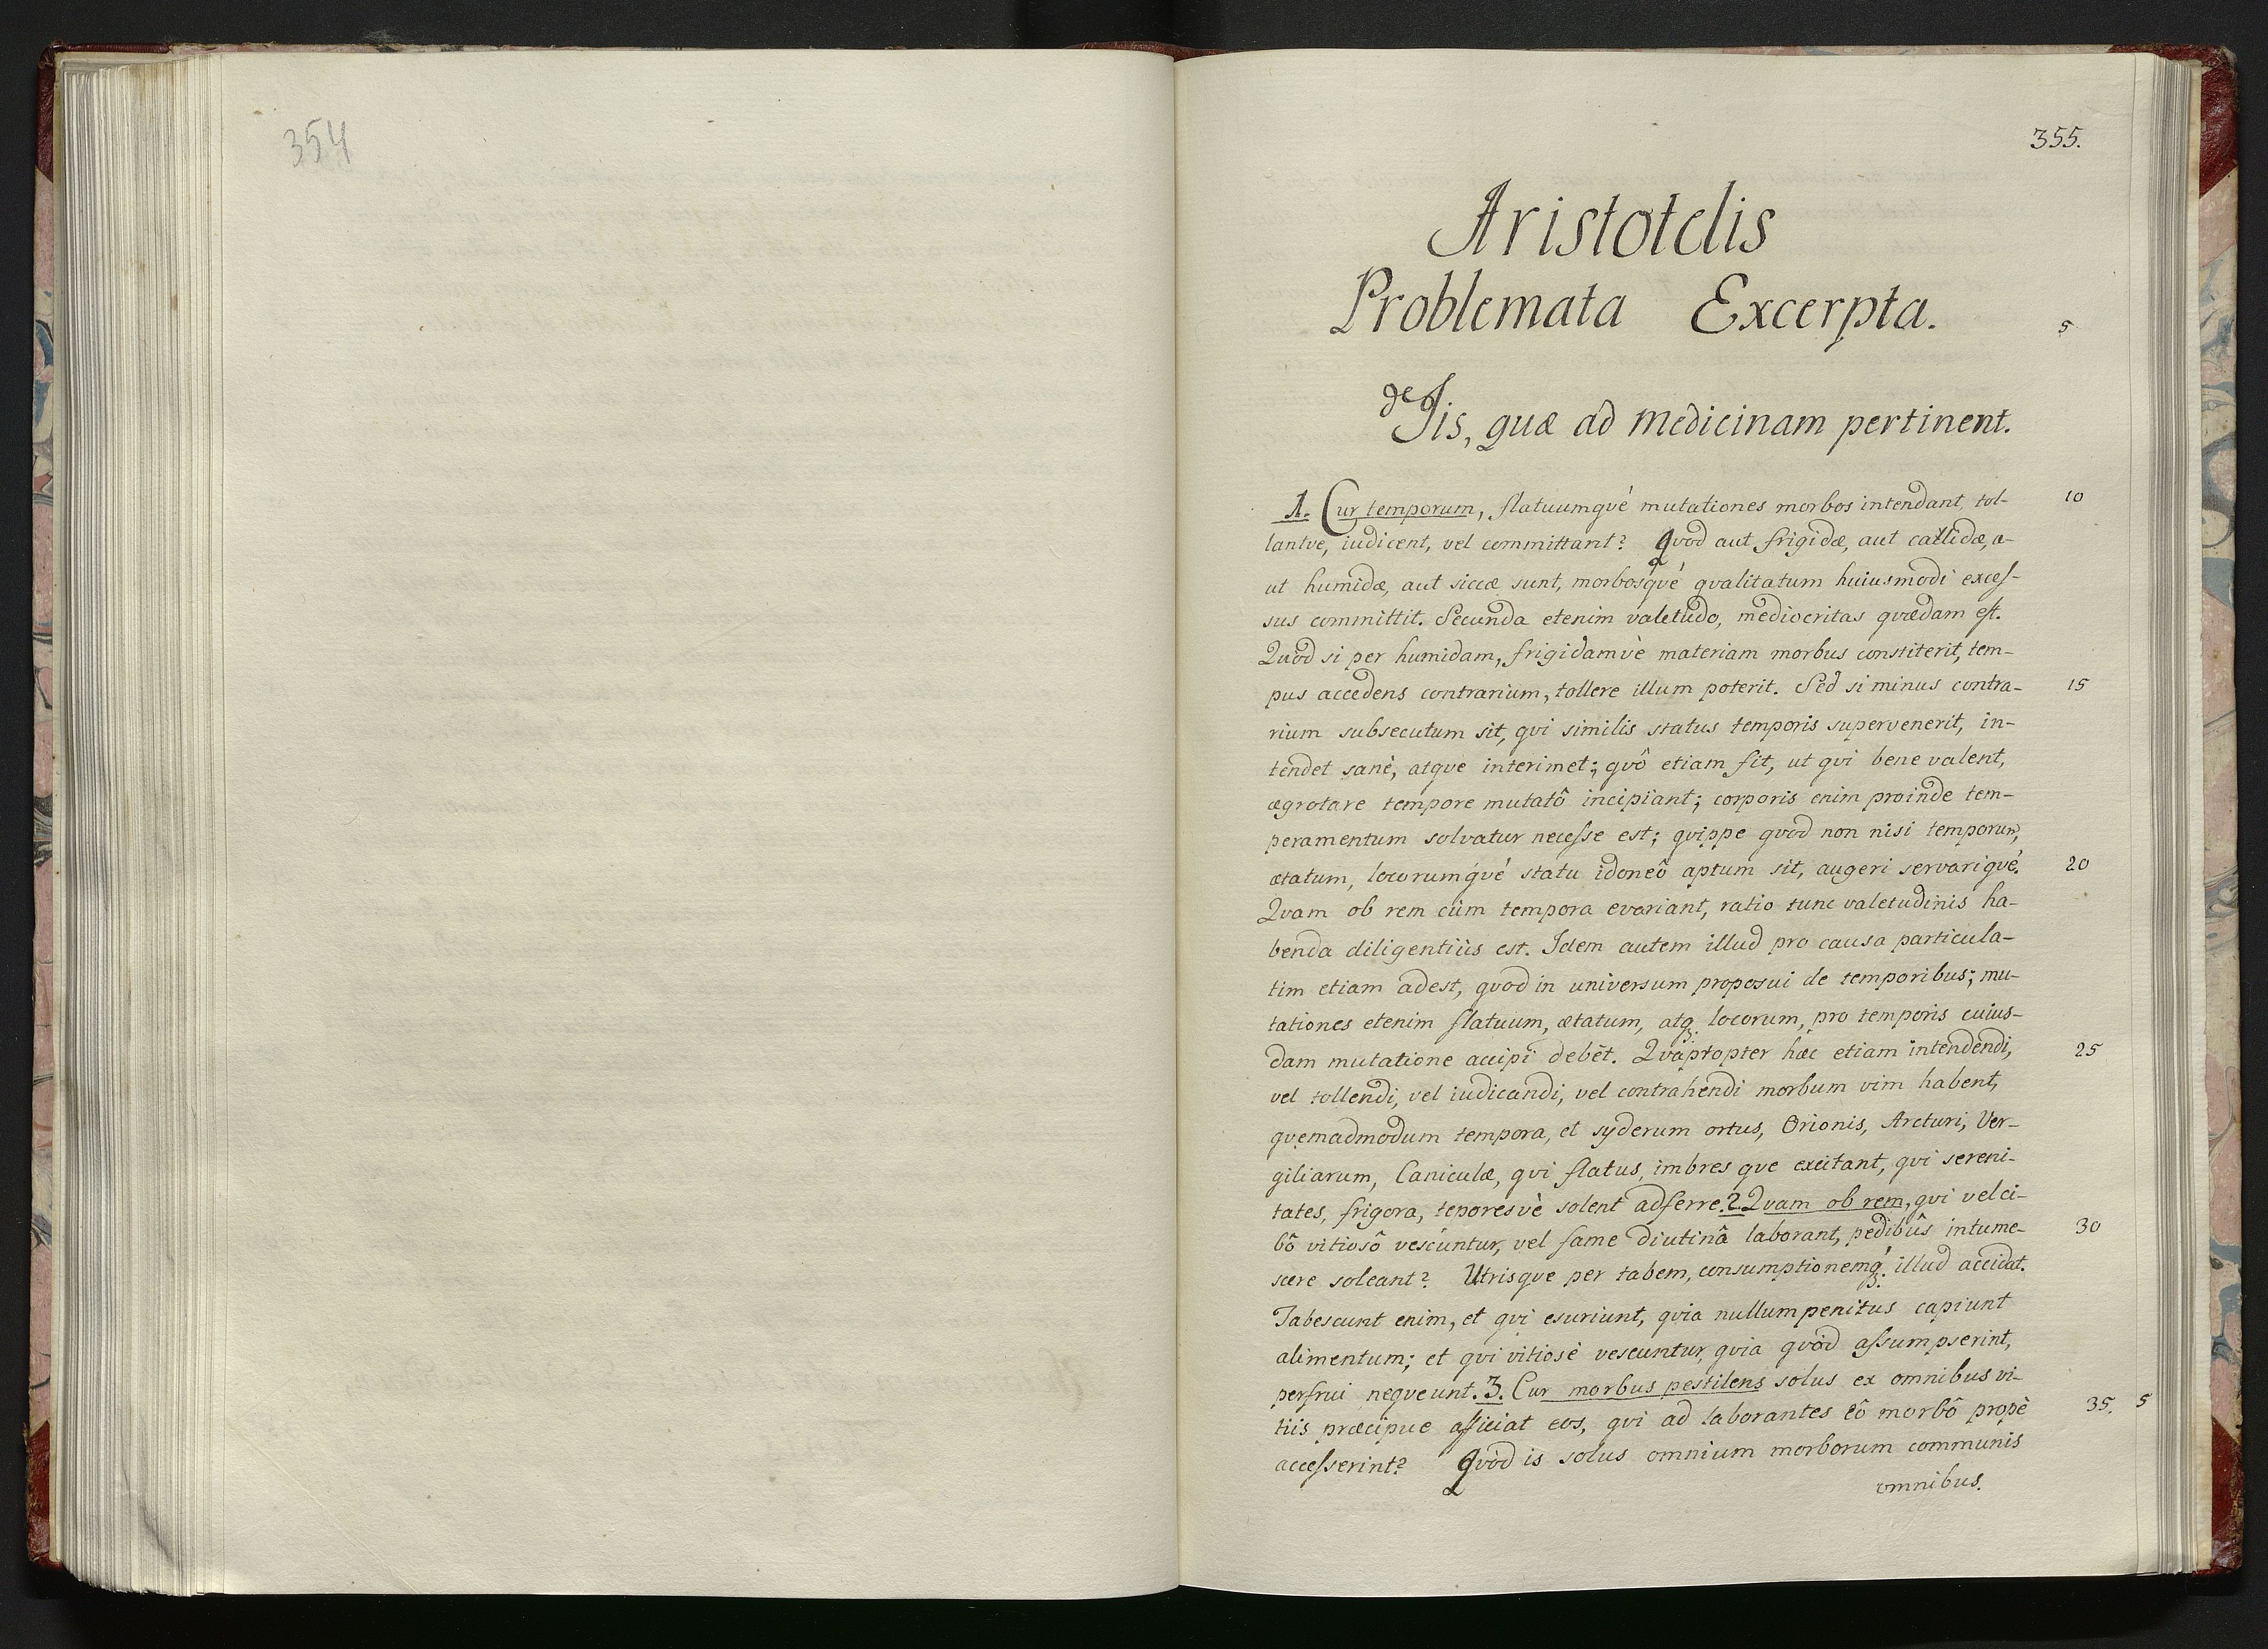 354
355.
Aristotelis
Problemata Excerpta.
5
de Iis, quæ ad medicinam pertinent.
1. Cur temporum, flatuumqvé mutationes morbos intendant, tol- 10
lantve, iudicent, vel committant? Qvod aut frigidæ, aut callidæ, a-
ut humidæ, aut siccæ sunt, morbosqvé qvalitatum huiusmodi exces-
sus committit. Secunda etenim valetudo, mediocritas qvædam est.
Quod si per humidam, frigidamvè materiam morbus constiterit, tem-
pus accedens contrarium, tollere illum poterit. Sed si minus contra- 15
rium subsecutum sit, qvi similis status temporis supervenerit, in-
tendet sanè, atqve interimet; qvô etiam fit, ut qvi bene valent,
ægrotare tempore mutatô incipiant; corporis enim proinde tem-
peramentum solvatur necesse est; qvippe qvod non nisi temporum,
ætatum, locorumqvé statu idoneô aptum sit, augeri servariqvé. 20
Qvam ob rem cùm tempora evariant, ratio tunc valetudinis ha-
benda diligentiùs est. Idem autem illud pro causa particula-
tim etiam adest, qvod in universum proposui de temporibus; mu-
tationes etenim flatuum, ætatum, atqꝫ locorum, pro temporis cuius-
dam mutatione accipi debēt. Qvapropter hæc etiam intendendi, 25
vel tollendi, vel iudicandi, vel contrahendi morbum vim habent,
qvemadmodum tempora, et syderum ortus, Orionis, Arcturi, Ver-
giliarum, Caniculæ, qvi flatus, imbres qve excitant, qvi sereni-
tates, frigora, teporesvè solent adferre. 2 Qvam ob rem, qvi vel ci-
bô vitiosô vescuntur, vel fame diutinâ laborant, pedibûs intume- 30
scere soleant? Utrisqve per tabem, consumptionemqꝫ́ illud accidat.
Tabescunt enim, et qvi esuriunt, qvia nullum penitus capiunt
alimentum; et qvi vitiosè vescuntur, qvia qvòd assumpserint,
perfrui neqveunt. 3. Cur morbus pestilens solus ex omnibus vi-
tiis præcipue afficiat eos, qvi ad laborantes eô morbô propè 35. 5
accesserint? Qvòd is solus omnium morborum communis
omnibus.